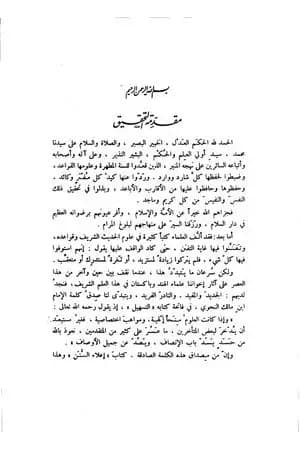 بسم الله الرحمن الرحيم
مقدمة التحقيق
الحمد لله الحَكَم العَدْل ، الخبير البصير ، والصلاة والسلام على سيدنا
محمد ، سيد أولي العِلم والحُكْم ، البشير النذير ، وعلى آله وأصحابه
وأتباعه السائرين على نهجه المنير ، الذين قعّدوا للسنة المطهرة وعلومها القواعد ،
وضبطوا لحفظها كل شارد ووارد . وردّوا عنها كيد كل مُفسِد وكائد ،
وحفظوها وحافظوا عليها من الأقارب والأباعد ، وبذلوا في تحقيق ذلك
النفس والنفيس من كل كريم وماجد .
فجزاهم الله خيراً عن الأمة والإسلام ، وأقر عيونهم برضوانه العظيم
في دار السلام . ورزقنا السير على منهاجهم لبلوغ المرام .
أما بعد: فقد ألف العلماء كتباً كثيرة في علوم الحديث الشريف وقواعده ،
وتفننوا فيها غاية التفنن ، حتى كاد الواقف عليها يقول : إنهم استوفوا
فيها كل شيء ، فلم يتركوا زيادة لمستزيد ، أو ثغرة لمستدرك أو متعقب .
ولكن سرعان ما يتبدد هذا ، عندما نقف بين حين وآخر من هذا
العصر على آثار إخواننا علماء الهند وباكستان في هذا العلم الشريف ، فنجد
لديهم : الجديد والمفيد . والنادر الفريد ، ويتبدى لنا صدق كلمة الإمام
ابن مالك النحوي ، في فاتحة كتابه « التسهيل » ، إذ يقول رحمه الله تعالى :
« وإذا كانت العلوم منحاً إلهية ، ومواهب اختصاصية ، فغير مستبعد
أن يُدّخر لبعض المتأخرين ، ما عسر على كثير من المتقدمين ، نعوذ بالله
من حسد يسد باب الإنصاف ، ويصد عن جميل الأوصاف » .
وإن من مصداق هذه الكلمة الصادقة . كتاب « إعلاء السنن » وهذا